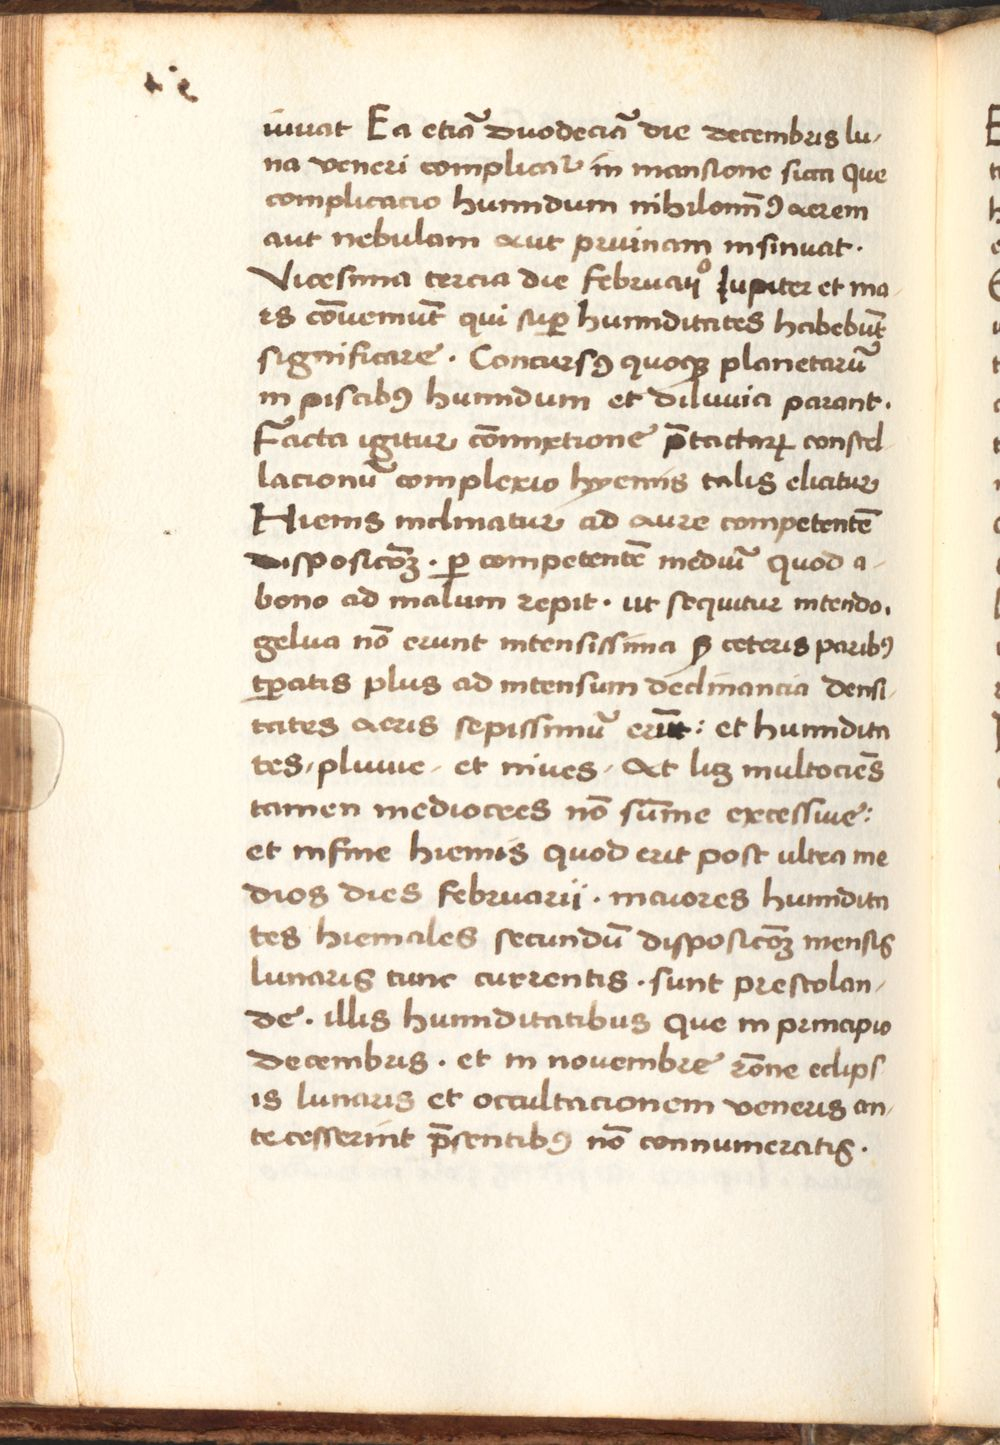 iuuat Ea etiā duodeciā die decembris lu-
na veneri complicat᷑ in mansione sicca que
complicacio humidum nihilomīꝰ aerem
aut nebulam aut pruinam insinuat.
Vicesima tercia die februarijͦ Jupiter et ma-
rs cōueniūt qui suꝑ humiditates habebūt
significare. Concursꝰ quoqꝫ planetarū
in piscibꝰ humidum et diluuia parant.
Facta igitur cōmixtione p̄tactaꝝ constel-
lacionū complexio hyemis talis elicitur
Hiems inclinatur ad aure competentē
disposicōꝫ. ꝑ competentē mediū quod a-
bono ad malum repit. ut sequitur intendo.
gelua nō erunt intensissima ꝫ ceteris paribꝰ
tꝑatis plus ad intensum declinancia densi-
tates aeris sepissimū erūt: et humidita
tes, pluuie, et niues, At licꝫ multociēs
tamen mediocres nō sūme excessiue:
et in fine hiemis quod erit post ultra me
dios dies februarii. maiores humidita
tes hiemales secundū disposicōꝫ mensis
lunaris tunc currentis. sunt prestolan-
de. illis humiditatibus que in principio
decembris. et in nouembre rōne eclips
is lunaris et occultacionem veneris an-
te cesserint p̄sentibꝰ nō connumeratis.